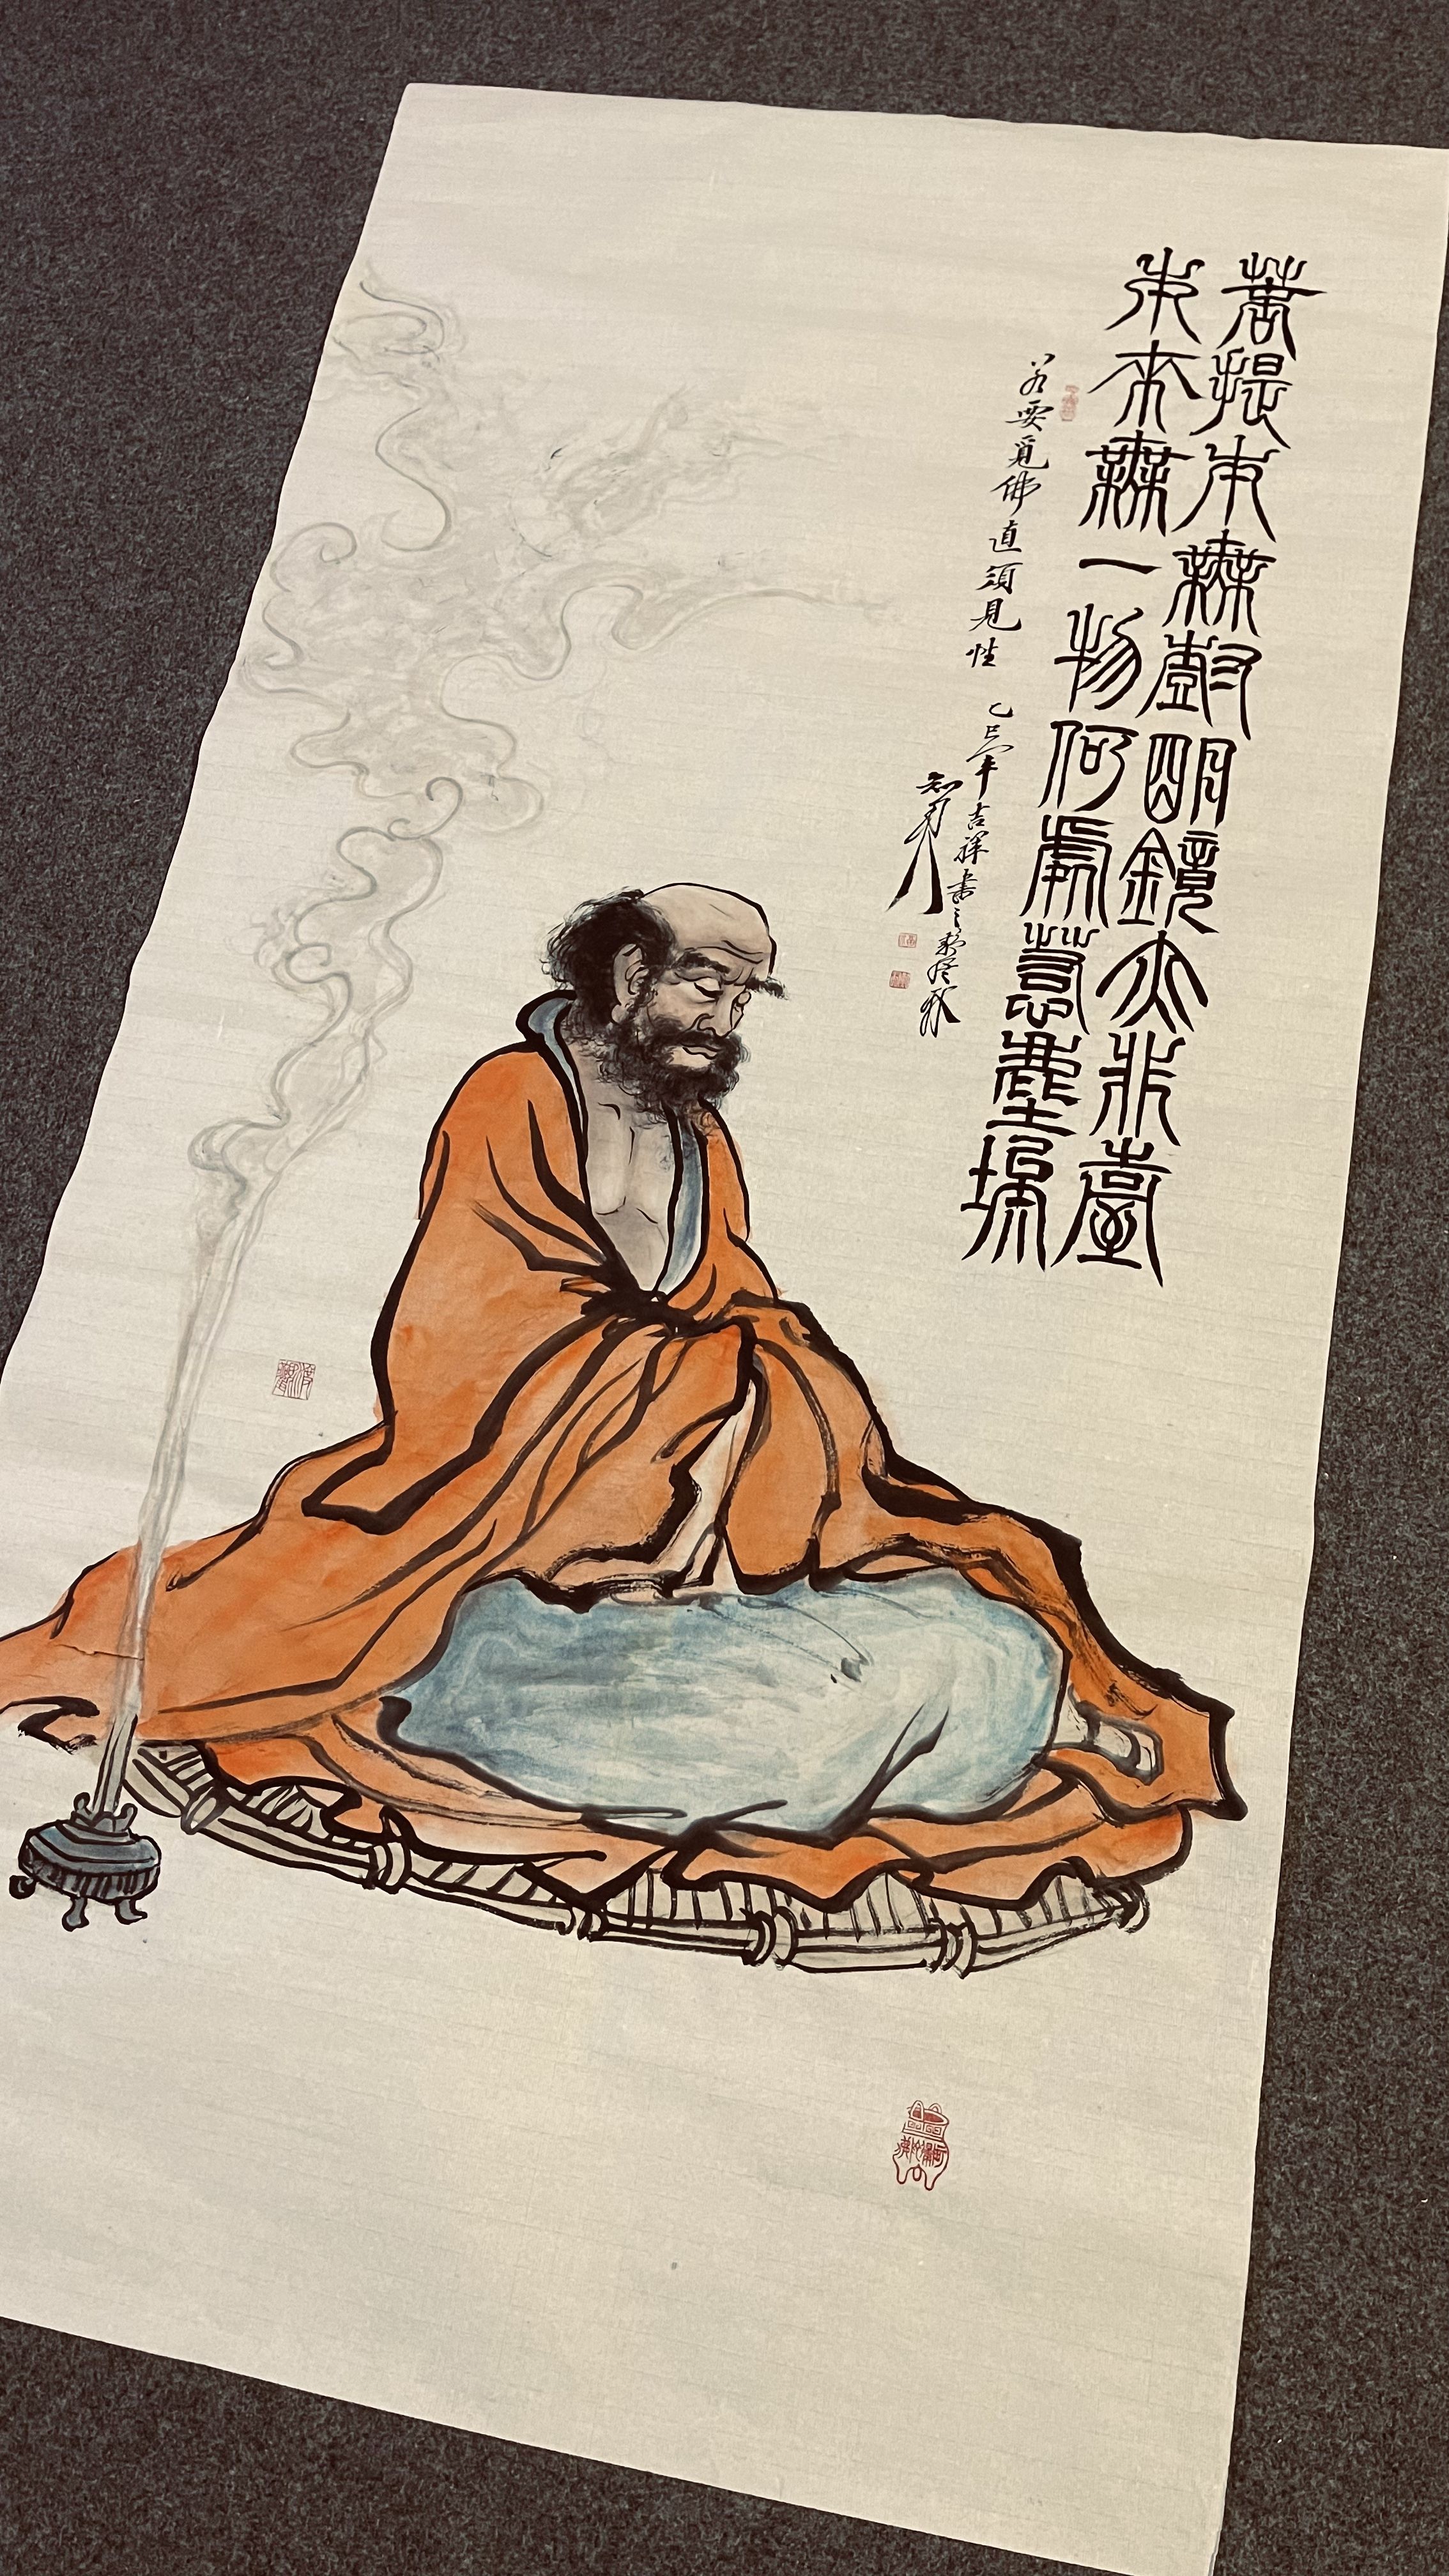 菩提本無樹明鏡亦非臺
本來無一物何處惹塵埃
若要覓佛直須見性
乙巳年吉祥書之